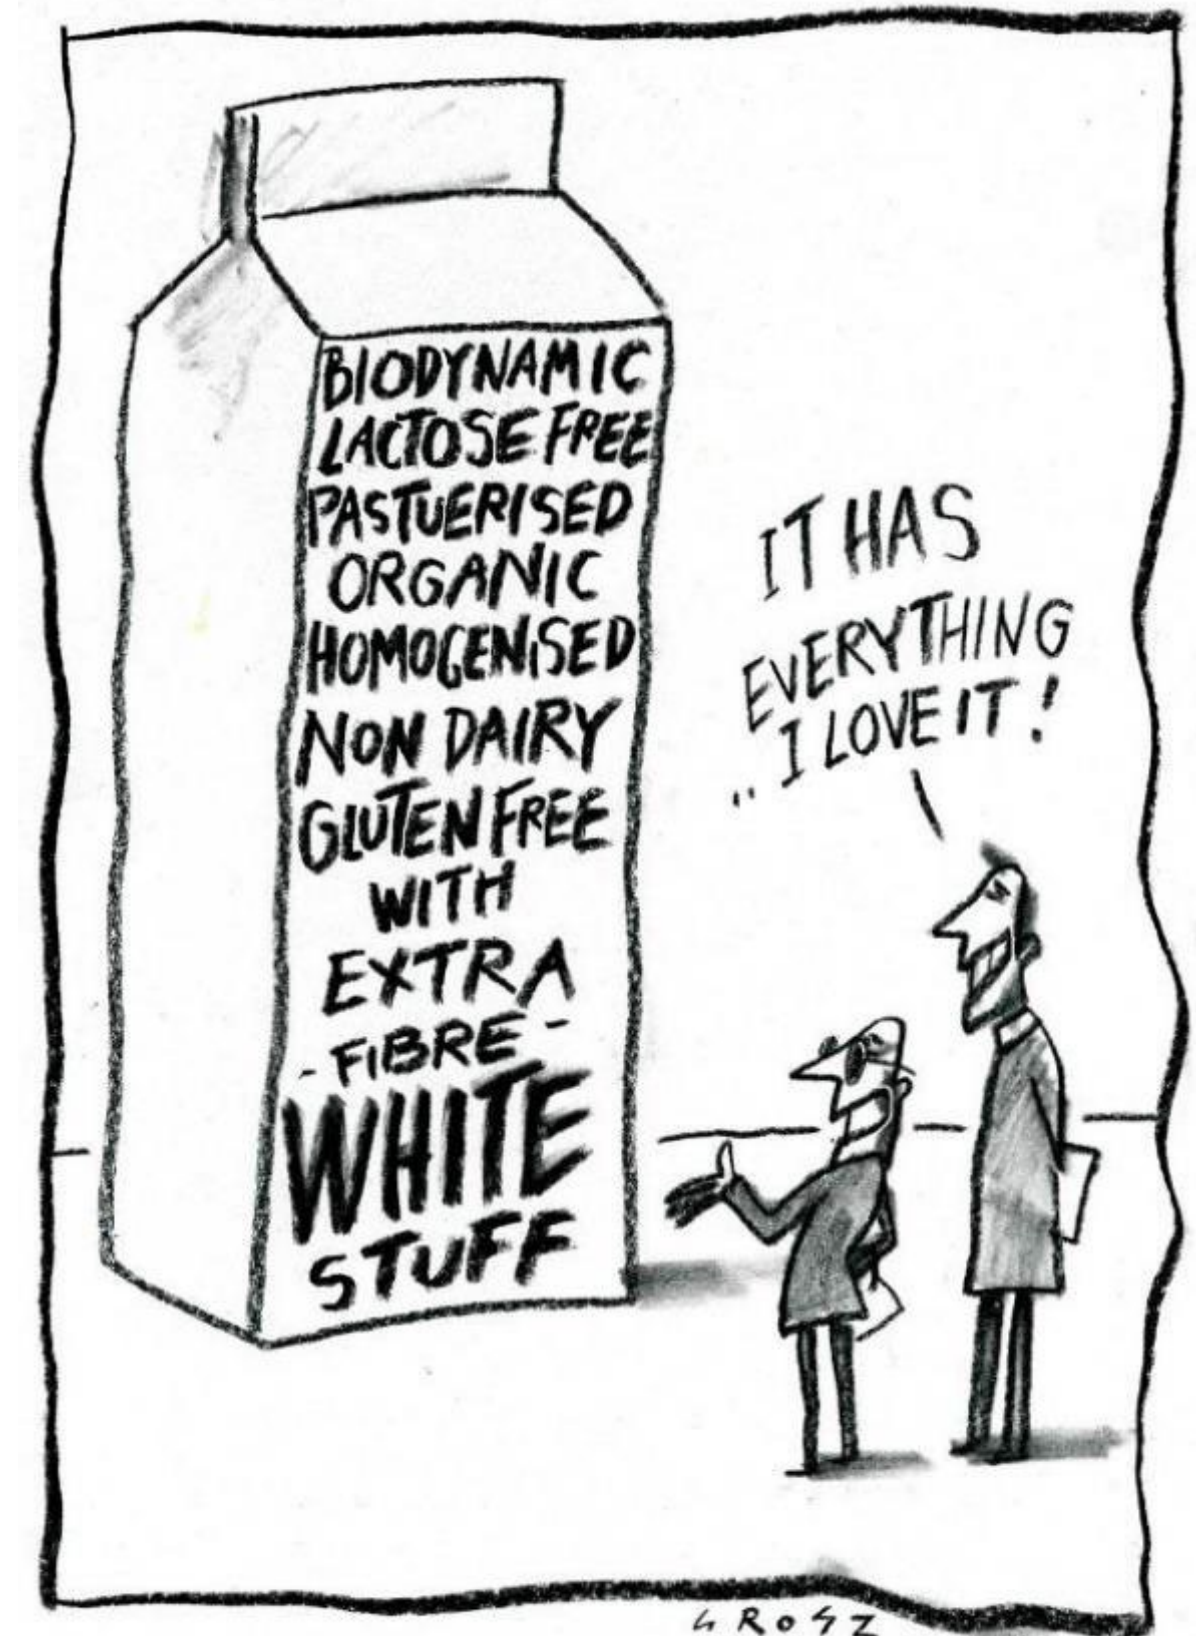 BIODYNAMIC
LACTOSE FREE
PASTUERISED
ORGANIC
HOMOGENISED
NON DAIRY
GLUTEN FREE
WITH
EXTRA
- FIBRE -
WHITE
STUFF
IT HAS
EVERYTHING
.. I LOVE IT!
GROSZ